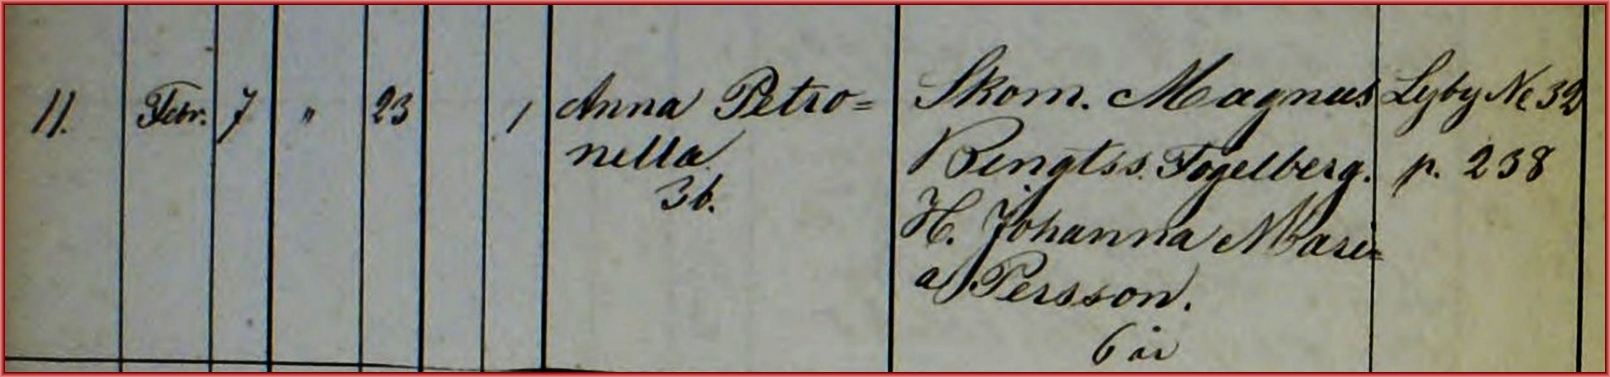 11. Febr. 7 " 23 1 Anna Petro= Skom. Magnus Lyby No 32
nella Bengtss. Fogelberg. p. 238
3b.
H. Johanna Mari=
a Persson.
6 år